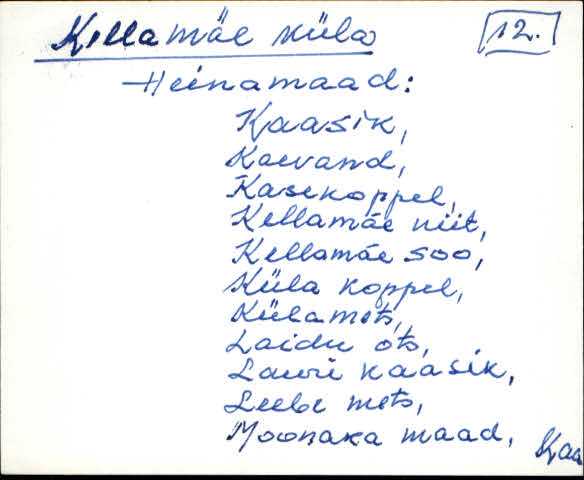 Kellamäe küla
12.
Heinamaad:
Kaasik,
Kaevand,
Kasekoppel,
Kellamäe niit,
Kellamäe soo,
Küla koppel,
Külamets,
Laidu ots,
Lauri kaasik,
Leebe mets,
Moonaka maad,
Kaa